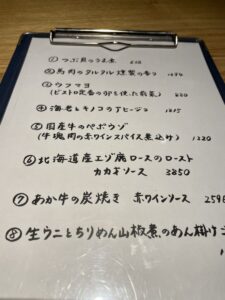 ① つぶ貝のうま煮
② 馬肉のタルタル 燻製の香り
③ ウフマヨ
(ビストロ定番の卵を使った前菜)
④ 海老とキノコのアヒージョ
⑤ 国産牛のペポウゾ
(牛塊肉の赤ワインスパイス煮込み) 1220
⑥ 北海道産エゾ鹿ロースのロースト
カカオソース 3250
⑦ あか牛の炭焼き 赤ワインソース
⑧ 生ウニとちりめん山椒煮のあん掛け